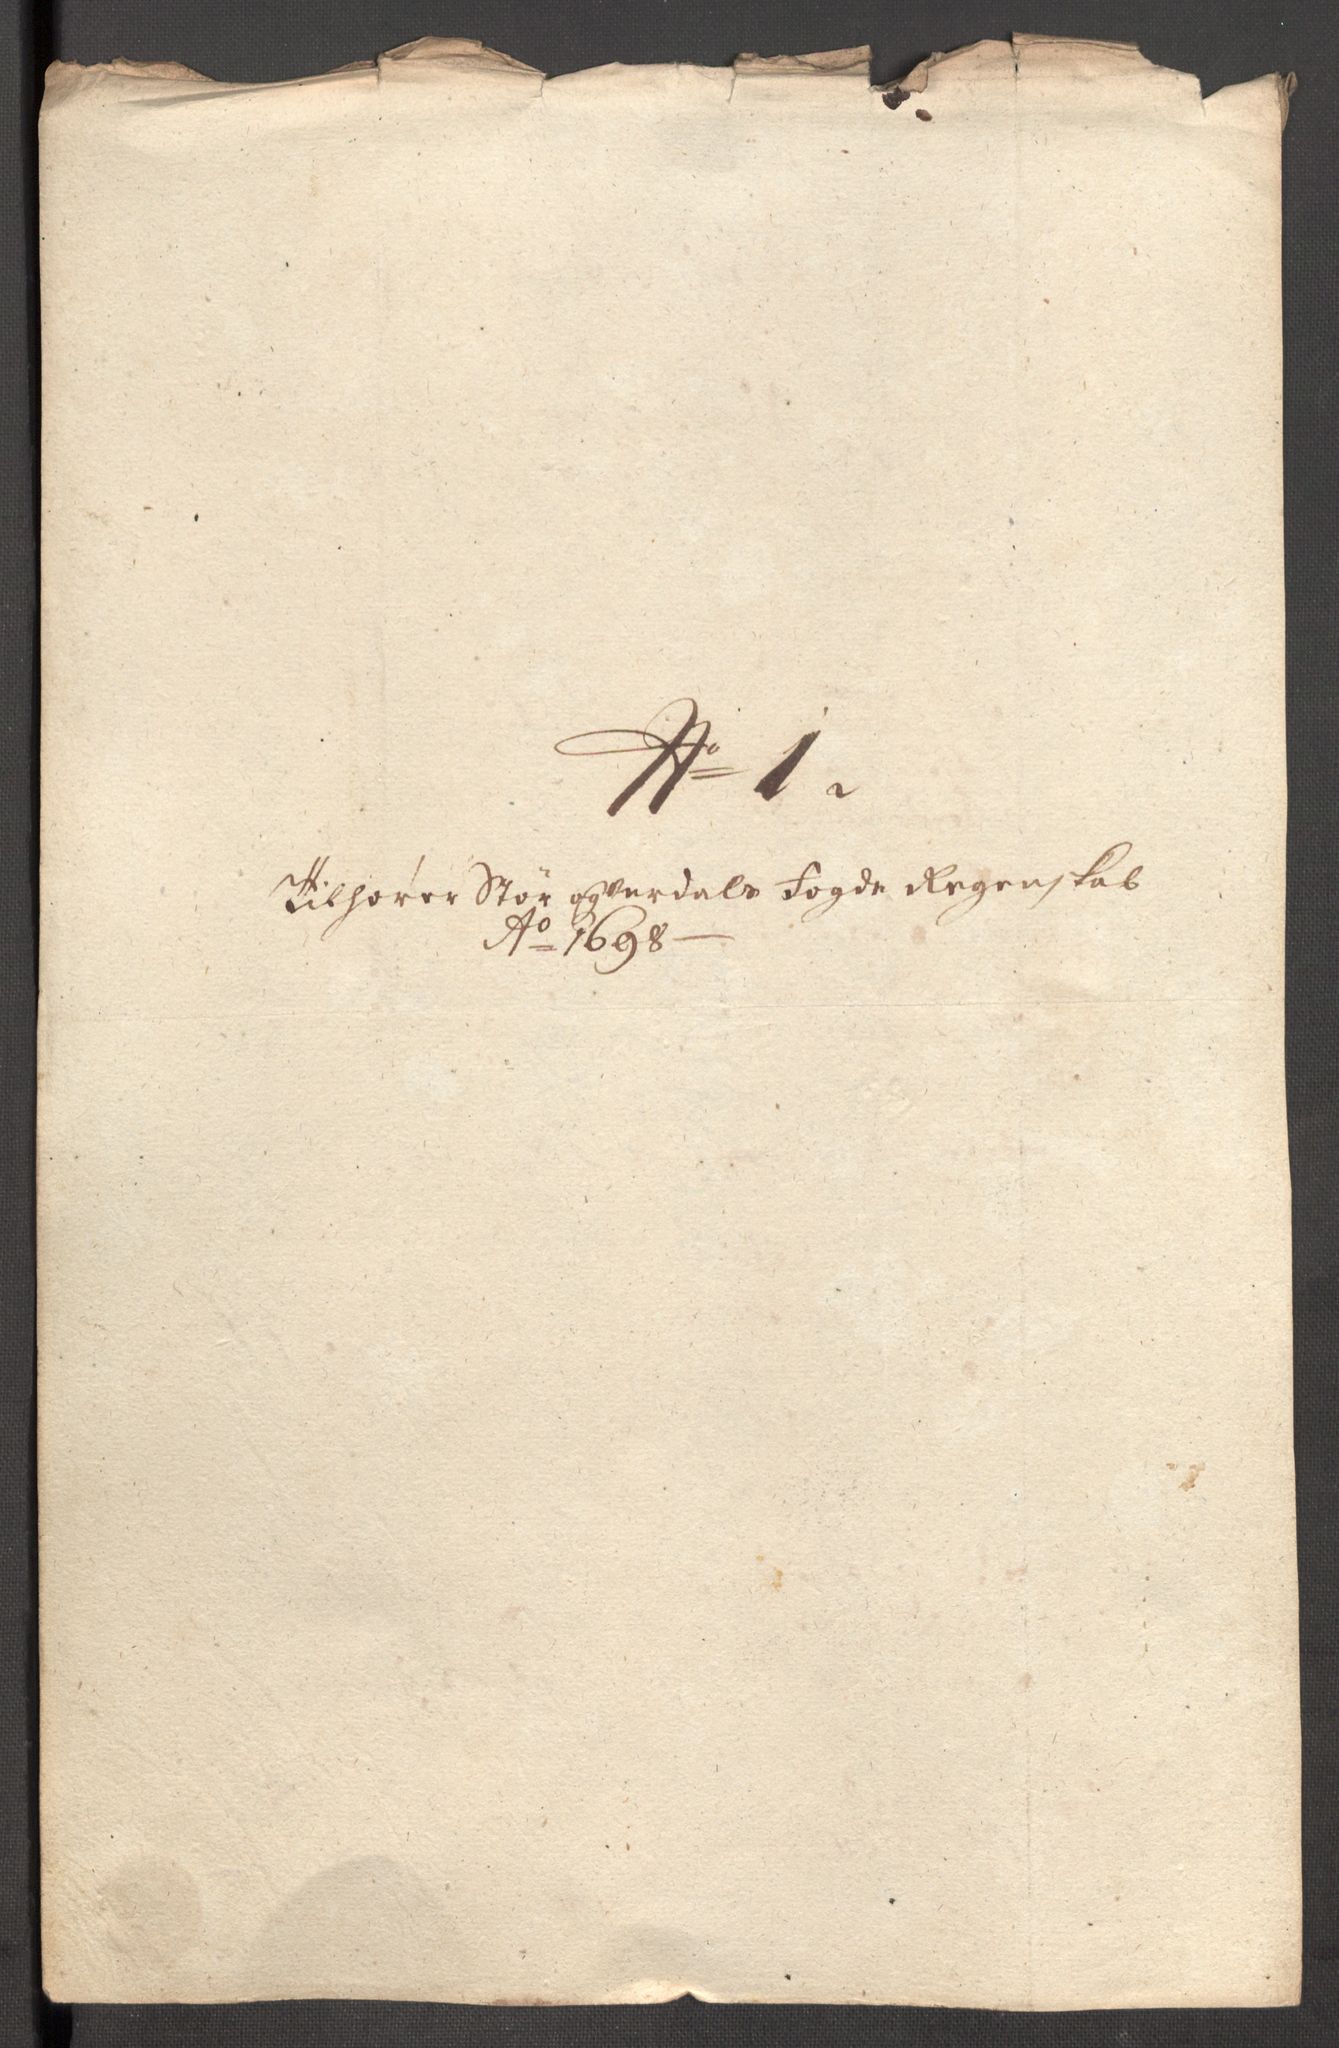 No 1.
Tilhører Stør og Verdals Fogde Regenskab
Ao 1698